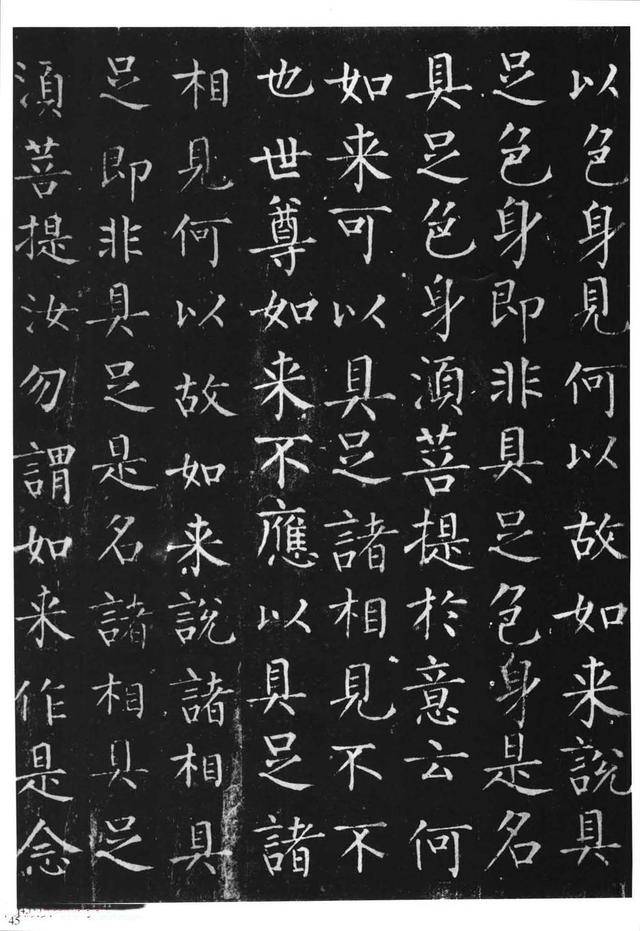 以色身見何以故如来說具
足色身即非具足色身是名
具足色身湏菩提於意云何
如来可以具足諸相見不不
也世尊如来不應以具足諸
相見何以故如来說諸相具
足即非具足是名諸相具足
湏菩提汝勿謂如来作是念
45